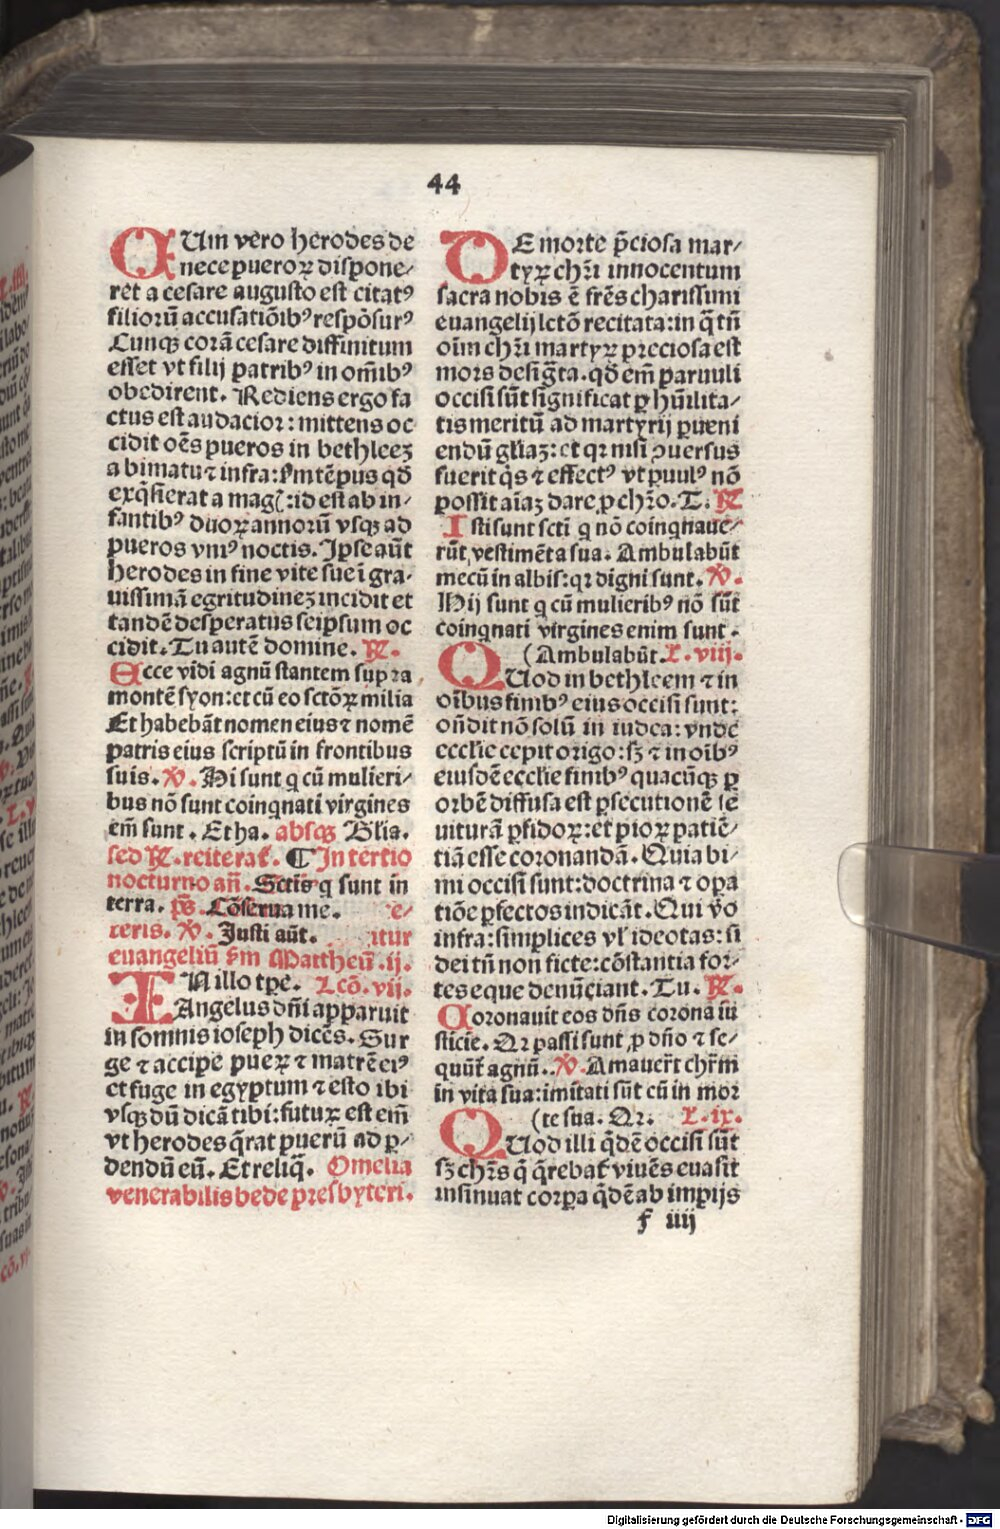 44
CUm vero herodes de
nece pueroꝝ dispone⸗
ret a cesare augusto est citatꝰ
filioꝛũ accusatiõibꝰ respõsurꝰ
Cunqꝫ corã cesare diffinitum
esset vt filij patribꝰ in om̃ibꝰ
obedirent. Rediens ergo fa
ctus est audacior: mittens oc
cidit oẽs pueros in bethleeꝫ
a bimatu ⁊ infra: ẜm tẽpus qđ
exq̃sierat a mag̃: id est ab in⸗
fantibꝰ duoꝝ annorũ vsqꝫ ad
pueros vniꝰ noctis. Ipse aũt
herodes in fine vite sue ĩ gra⸗
uissimã egritudineꝫ incidit et
tandẽ desperatus seipsum oc
cidit. Tu autẽ domine. ℟.
Ecce vidi agnũ stantem supra
montẽ syon: et cũ eo sctõꝝ milia
Et habebãt nomen eius ⁊ nomẽ
patris eius scriptũ in frontibus
suis. ℣. Hi sunt q cũ mulieri⸗
bus nõ sunt coinqnati virgines
em̃ sunt. Et ha. absqꝫ Glĩa.
sed ℟. reiterat̃. ¶ In tertio
nocturno añ. Sctis q sunt in
terra. p̃s. Cõserua me. e⸗
teris. ℣. Justi aũt. itur
euangeliũ ẜm Mattheũ. ij.
IN illo tp̃e. Lcõ. vij.
Angelus dñi apparuit
in somnis ioseph dicẽs. Sur
ge ⁊ accipe pueꝝ ⁊ matrẽ eiꝰ
et fuge in egyptum ⁊ esto ibi
vsqꝫ dũ dicã tibi: futuꝝ est em̃
vt herodes q̃rat puerũ ad ꝑ⸗
dendũ eũ. Et reliq̃. Omelia
venerabilis bede presbyteri.
DE morte p̃ciosa mar⸗
tyꝝ chr̃i innocentum
sacra nobis ẽ fr̃es charissimi
euangelij lctõ recitata: in q̃ tñ
oĩm chr̃i martyꝝ preciosa est
mors desig̃ta. qđ em̃ paruuli
occisi sũt significat ꝑ hũilita⸗
tis meritũ ad martyrij ꝑueni
endũ gl̃iaꝫ: et qꝛ nisi ꝯuersus
fuerit q̃s ⁊ effectꝰ vt ꝑuulꝰ nõ
possit aĩaꝫ dare ꝓ chr̃o. T. ℟
Isti sunt scti q nõ coinqnaue⸗
rũt vestimẽta sua. Ambulabũt
mecũ in albis: qꝛ digni sunt. ℣.
Hij sunt q cũ mulieribꝰ nõ sũt
coinqnati virgines enim sunt.
(Ambulabũt. L. viij.
QUod in bethleem ⁊ in
oĩbus finibꝰ eius occisi sunt:
oñdit nõ solũ in iudea: vnde
ecclie cepit origo: sꝫ ⁊ in oĩbꝰ
eiusdẽ ecclie finibꝰ quacũqꝫ ꝑ
orbẽ diffusa est ꝑsecutionẽ se
uiturã ꝑfidoꝝ: et pioꝝ patiẽ⸗
tiã esse coronandã. Quia bi⸗
mi occisi sunt: doctrina ⁊ oꝑa
tiõe ꝑfectos indicãt. Qui v̾o
infra: simplices vl̾ ideotas: si
dei tñ non ficte: cõstantia for⸗
tes eque denũciant. Tu. ℟.
Coronauit eos dñs corona iu
sticie. Qꝛ passi sunt ꝓ dño ⁊ se⸗
quũt̃ agnũ. ℣. Amauer̃t chr̃m
in vita sua: imitati sũt cũ in mor
(te sua. Qꝛ. L. ix.
QUod illi q̃dẽ occisi sũt
sꝫ chr̃s q̃ q̃rebat̃ viuẽs euasit
insinuat corꝑa q̃dẽ ab impijs
f iiij
Digitalisierung gefördert durch die Deutsche Forschungsgemeinschaft - DFG